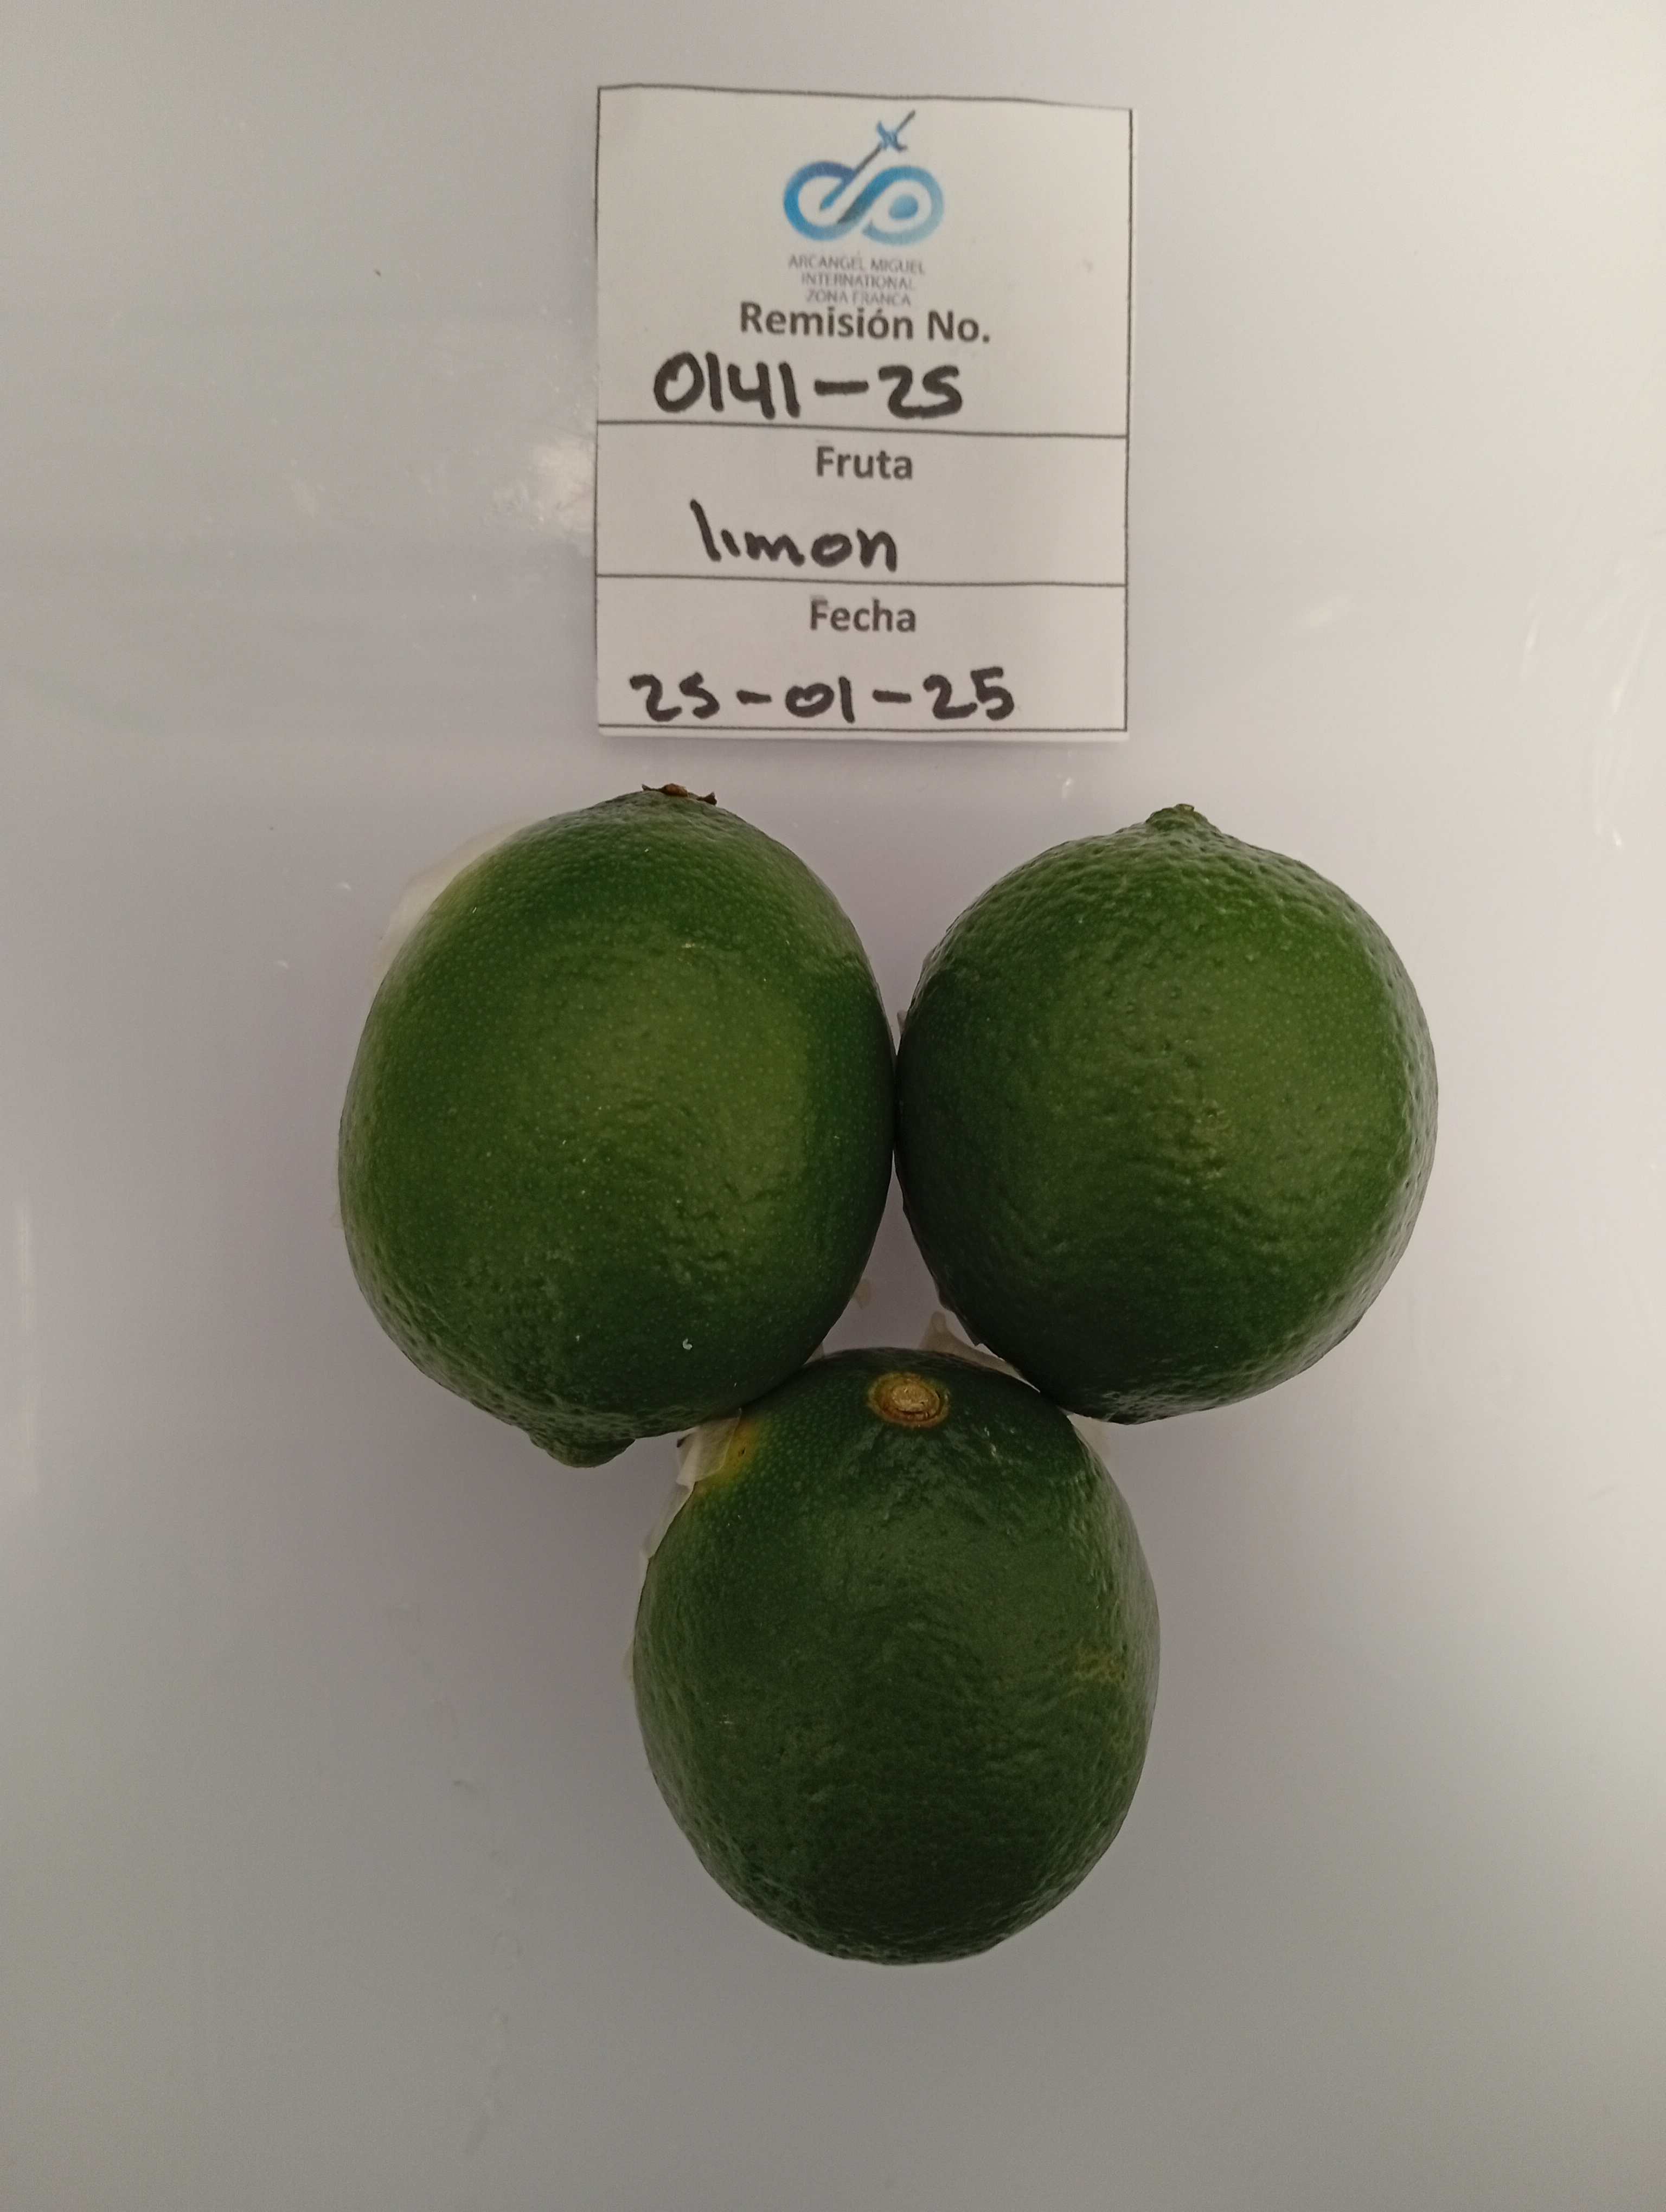 ARCANGEL MIGUEL
INTERNATIONAL
ZONA FRANCA
Remisión No.
0141-25
Fruta
limon
Fecha
25-01-25